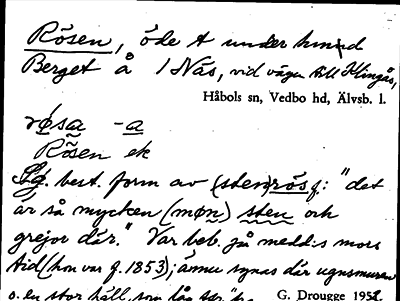 Rösen, öde t under hmd
Berget å 1 Näs, vid vägen till Hlingås,
Håbols sn, Vedbo hd, Älvsb. l.
røsa -a
Rösen ek
Sg. best. form av (sten)rös f.: "det
är så mycken (møn) sten och
grejor där." Var beb. på medd:s mors
tid (hon var f. 1853); ännu synas där ugnsmuren
o. en stor häll, som låg
G. Drougge 1952.